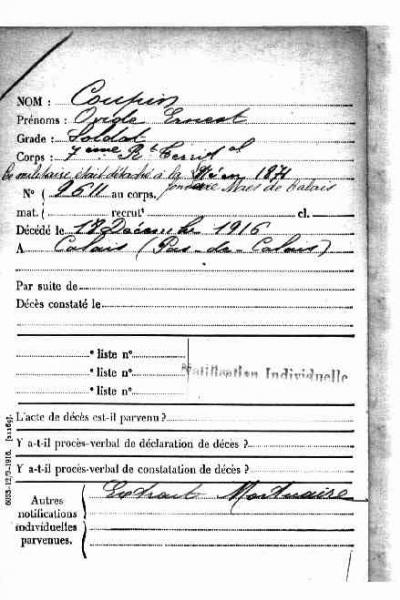 NOM : Coupin
Prénoms : Ovide Ernest
Grade : Soldat
Corps : 7ème Rt Territ al
Ce militaire était détaché à la 1871
Nº ( 9611 au corps. Maes de Calais
mat. ( recrutt cl.
Décédé le 18 Décembre 1916
A Calais (Pas-de-Calais)
Par suite de
Décès constaté le
e liste nº
e liste nº Notification Individuelle
e liste nº
L'acte de décès est-il parvenu ?
Y a-t-il procès-verbal de déclaration de décès ?
Y a-t-il procès-verbal de constatation de décès ?
Autres
notifications
individuelles
parvenues.
Extrait Mortuaire